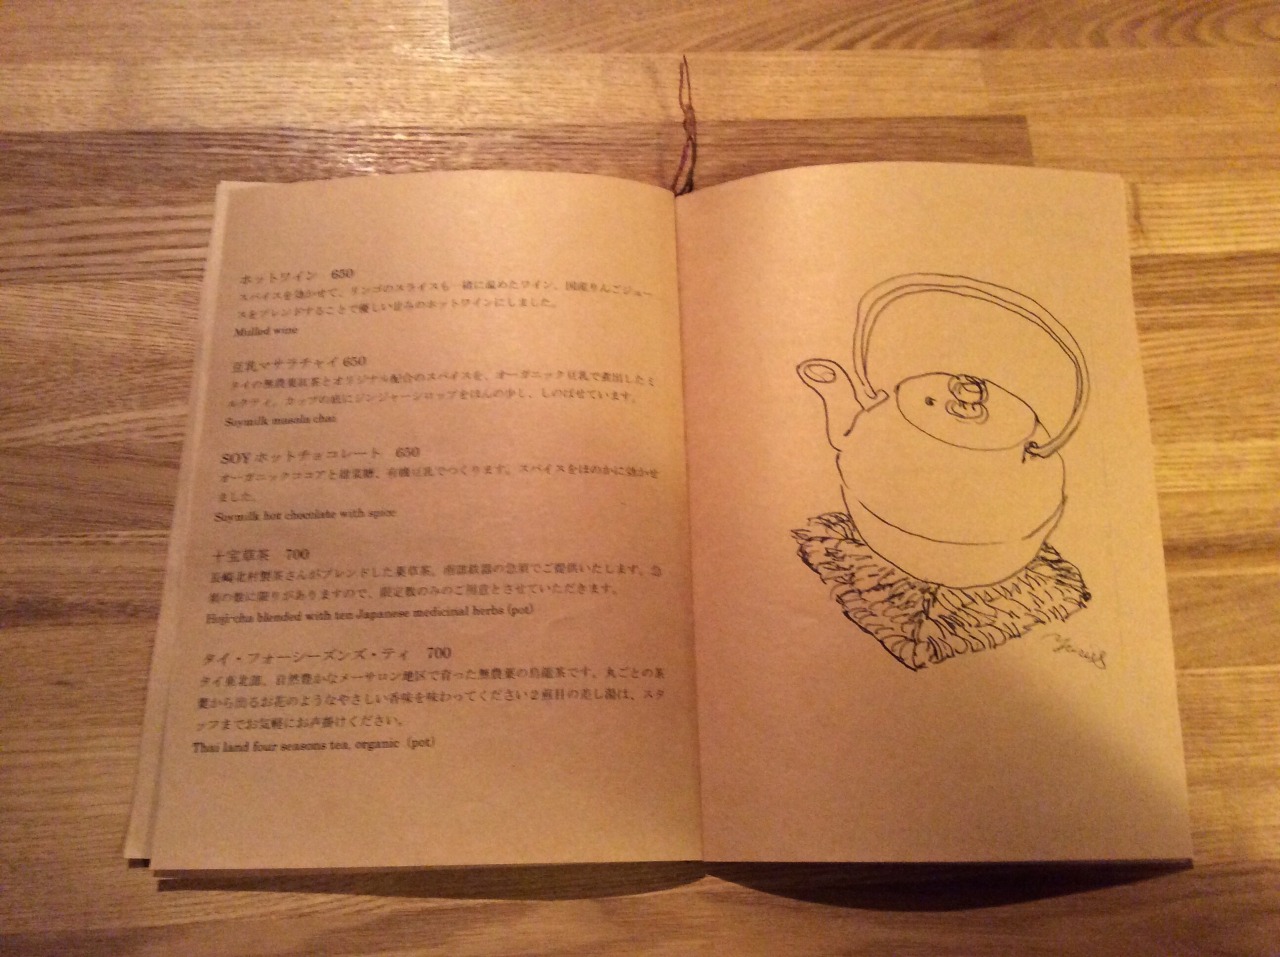 ホットワイン 650
スパイスを効かせて、リンゴのスライスも一緒に温めたワイン、国産りんごジュー
スをブレンドすることで優しい甘みのホットワインにしました。
Mulled wine
豆乳マサラチャイ 650
タイの無農薬紅茶とオリジナル配合のスパイスを、オーガニック豆乳で煮出したミ
ルクティ。カップの底にジンジャーシロップをほんの少し、しのばせています。
Soymilk masala chai
SOYホットチョコレート 650
オーガニックココアと甜菜糖、有機豆乳でつくります。スパイスをほのかに効かせ
ました。
Soymilk hot chocolate with spice
十宝草茶 700
北村製茶さんがブレンドした薬草茶。南部鉄器の急須でご提供いたします。急
須の数に限りがありますので、限定数のみのご用意とさせていただきます。
Hoji-cha blended with ten Japanese medicinal herbs (pot)
タイ・フォーシーズンズ・ティ 700
タイ東北部、自然豊かなメーサロン地区で育った無農薬の烏龍茶です。丸ごとの茶
葉から出るお花のようなやさしい香味を味わってください２煎目の差し湯は、スタ
ッフまでお気軽にお声掛けください。
Thai land four seasons tea, organic (pot)